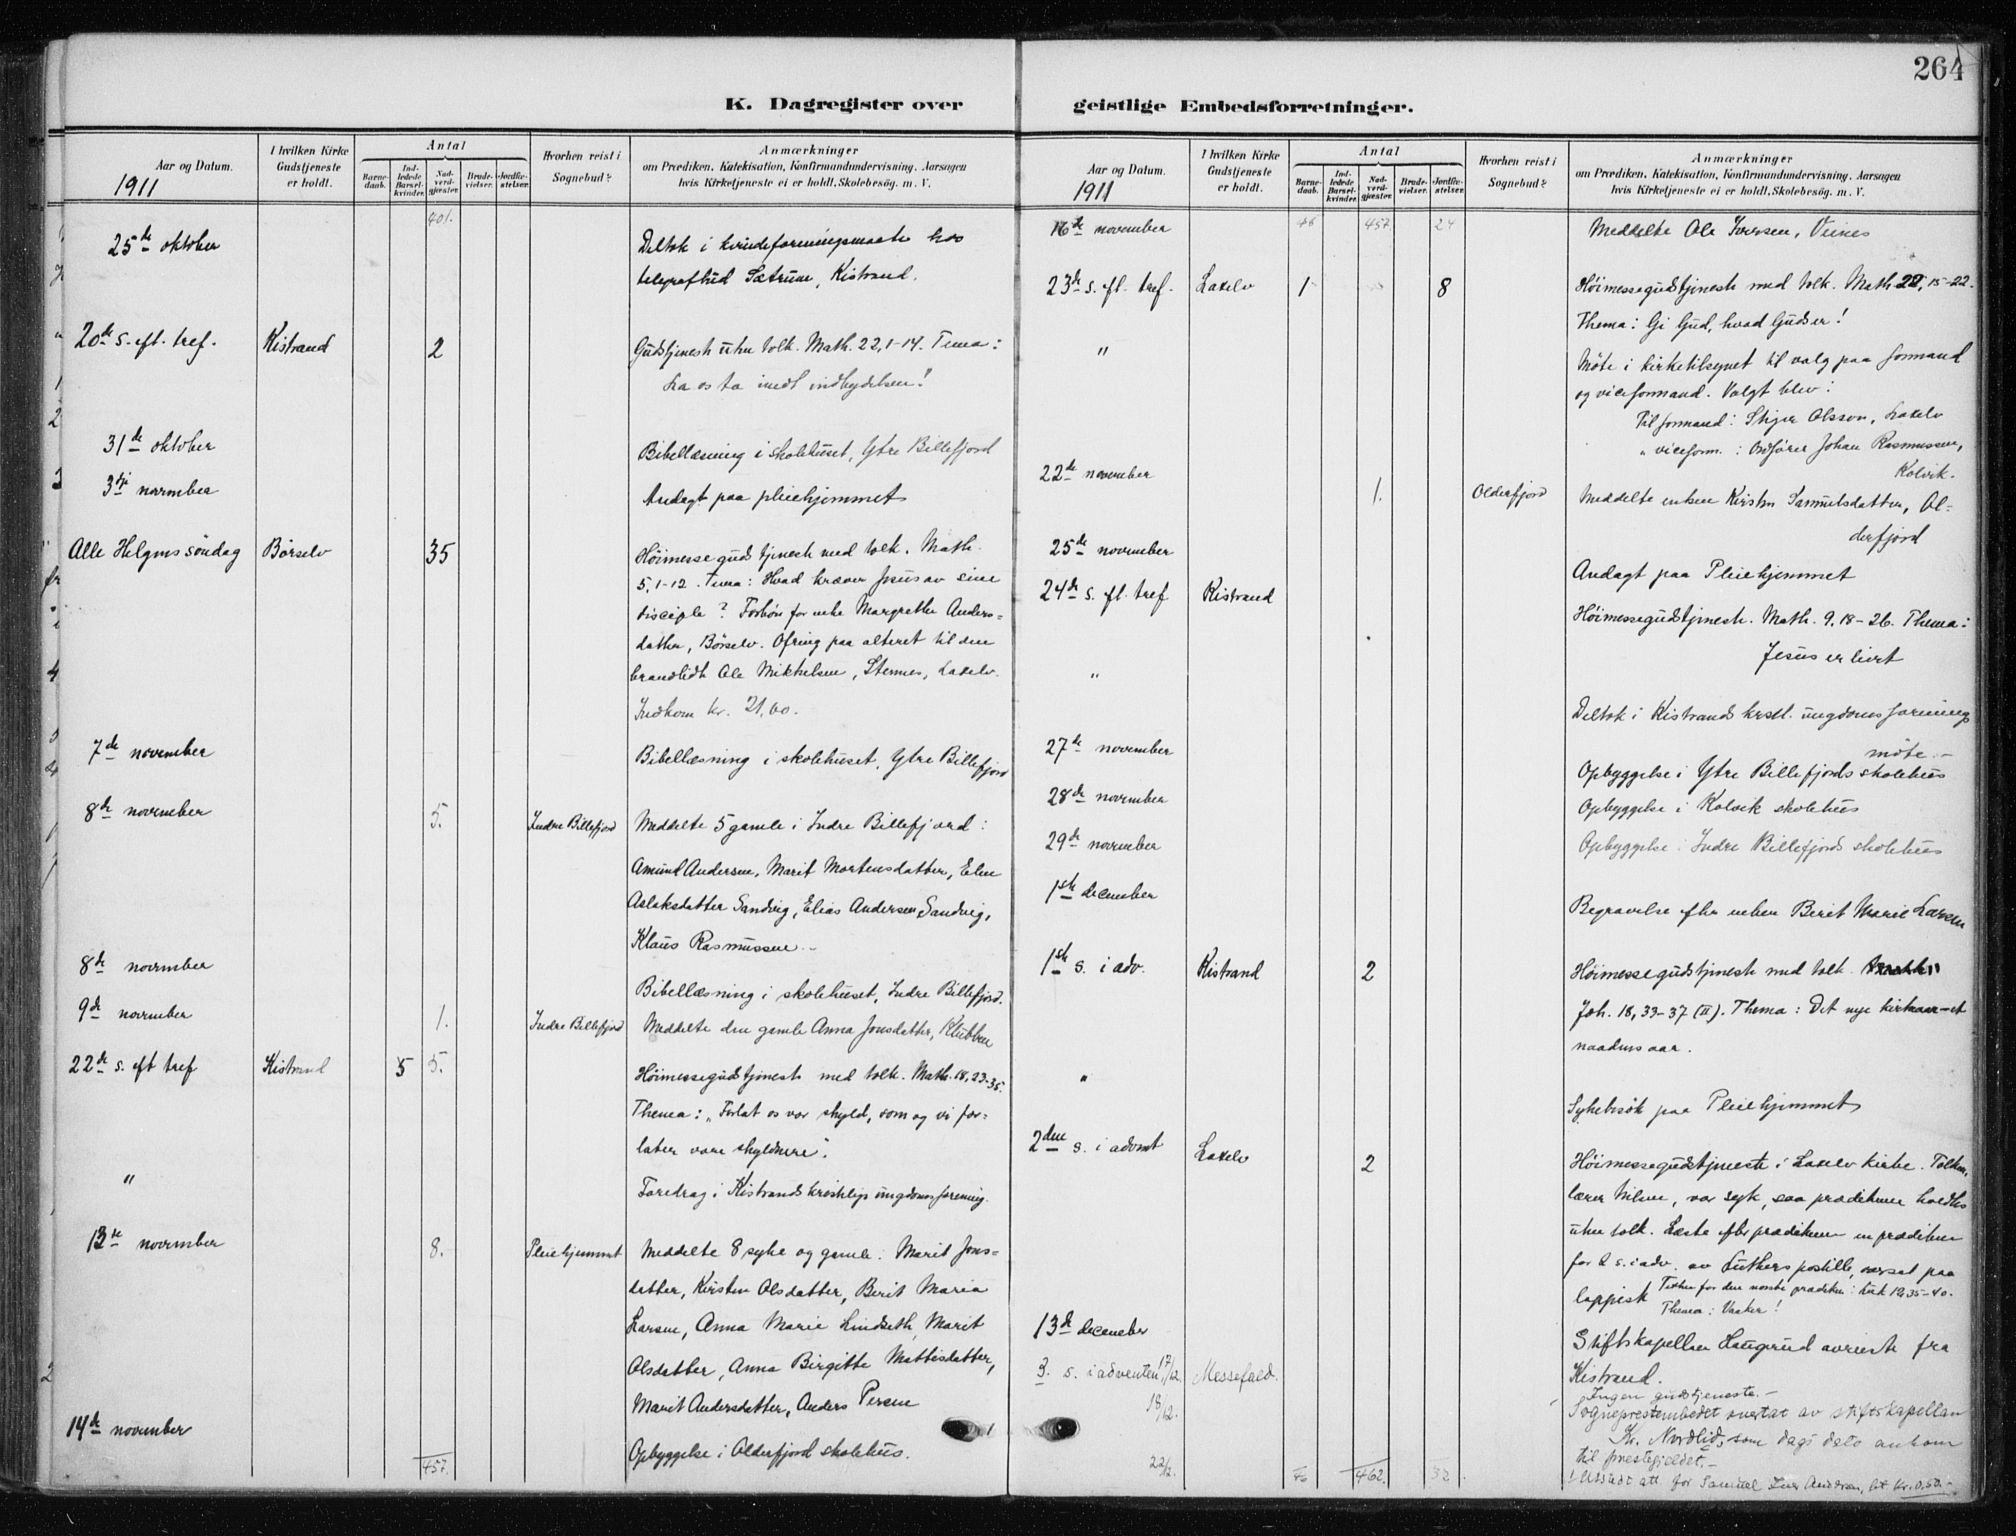 264
K. Dagregister over
geistlige Embedsforretninger.
Aar og Datum.
1911
I hvilken Kirke
Gudstjeneste
er holdt.
Antal
Barne-
daab.
Ind-
ledede
Barsel-
kvinder.
Nad-
verd-
gjester.
Brude-
vielser.
Jordfæ-
stelser.
Hvorhen reist i
Sognebud?
Anmærkninger
om Prædiken, Katekisation, Konfirmandundervisning, Aarsagen
hvis Kirketjeneste ei er holdt, Skolebesøg. m. V.
401.
25de oktober
Deltok i kvindeforeningsmøte hos
telegrafbud Sætrum, Kistrand.
20de s. eft. tref. Kistrand 2 Gudstjeneste uten tolk. Math. 22, 1-14. Tema:
La os ta imot indbydelsen!
31te oktober
Bibellæsning i skolehuset, Ytre Billefjord
3dje november
Andagt paa pleiehjemmet
Alle Helgens söndag Børselv 35 Høimessegudstjeneste med tolk. Math.
5, 1-12. Tema: Hvad kræver Jesus av sine
disciple? Forbön for enke Margrethe Anders-
datter, Börselv. Ofring paa alteret til den
brandlidt Ole Mikkelsen, Stennes, Laxelv.
Indkom kr. 21,60.
7de november
Bibellæsning i skolehuset, Ytre Billefjord
8de november 5. Indre Billefjord Meddelte 5 gamle i Indre Billefjord:
Amund Andersen, Marit Mortensdatter, Elen
Aslaksdatter Sandvig, Elias Andersen Sandvig,
Klaus Rasmussen.
8de november
Bibellæsning i skolehuset, Indre Billefjord.
9de november 1. Indre Billefjord Meddelte den gamle Anna Jonsdatter, Klubben
22de s. eft tref Kistrand 5 5. Høimessegudstjeneste med tolk. Math. 18, 23-35.
Thema: "Forlat os vor skyld, som og vi for-
later vore skyldnere".
" Foredrag i Kistrands kristelige ungdomsforening.
13de november 8. Pleiehjemmet Meddelte 8 syke og gamle: Marit Jons-
datter, Kirsten Olsdatter, Berit Maria
Larsen, Anna Marie Lindseth, Marit
Olsdatter, Anna Birgitte Mattisdatter,
Marit Andersdatter, Anders Persen
14de november
Opbyggelse i Olderfjord skolehus.
457.
Aar og Datum.
1911
I hvilken Kirke
Gudstjeneste
er holdt.
Antal
Barne-
daab.
Ind-
ledede
Barsel-
kvinder.
Nad-
verd-
gjester.
Brude-
vielser.
Jordfæ-
stelser.
Hvorhen reist i
Sognebud?
Anmærkninger
om Prædiken, Katekisation, Konfirmandundervisning, Aarsagen
hvis Kirketjeneste ei er holdt, Skolebesög. m. V.
16de november 457. 24 Meddelte Ole Iversen, Veines
23de s. eft. tref. Laxelv 1 8 Høimessegudstjeneste med tolk. Math 22, 15-22.
Thema: Gi Gud, hvad Guds er!
" Möte i kirketilsynet til valg paa formand
og viceformand. Valgt blev:
Til formand: Olsson, Laxelv
" viceform.: Ordfører Johan Rasmussen,
Kolvik.
22de november 1. Olderfjord Meddelte enken Kirsten Samuelsdatter, Ol-
derfjord
25de november
Andagt paa Pleiehjemmet
24de s. eft. tref Kistrand Høimessegudstjeneste. Math. 9. 18-26. Thema:
Jesus er livet
" Deltok i Kistrands kristl. ungdomsforenings
möte.
27de november Opbyggelse i Ytre Billefjords skolehus
28de november Opbyggelse i Kolvik skolehus
29de november Opbyggelse i Indre Billefjords skolehus
1ste december
Begravelse efter enken Berit Marie Larsen
1ste s. i adv. Kistrand 2 Høimessegudstjeneste med tolk.
Joh. 18, 33-37 (II). Thema: Det nye kirkeaar-et
naadens aar.
" Sykebesök paa Pleiehjemmet
2den s. i advent Laxelv 2 Høimessegudstjeneste i Laxelv kirke. Tolken,
lærer Nilsen, var syk, saa prædikenen holdtes
uten tolk. Læste efter prædikenen en prædiken
for 2 s. i adv. av Luthers postille, oversat paa
lappisk Teksten for den norske prædiken: Luk 12, 35-40.
Thema: Vaaker!
13de december Stiftskapellan Haugrud avreiste fra
Kistrand.
3. s. i adventen 17/12. Messefald. Ingen gudstjeneste.
18/12. Sogneprestembedet overtat av stiftskapellan
Kr. Nordlid, som dags dato ankom
til prestegjeldet.
22/12. 462. 32
Utstedt att. for Samuel Andersen, bt. kr. 0,50.